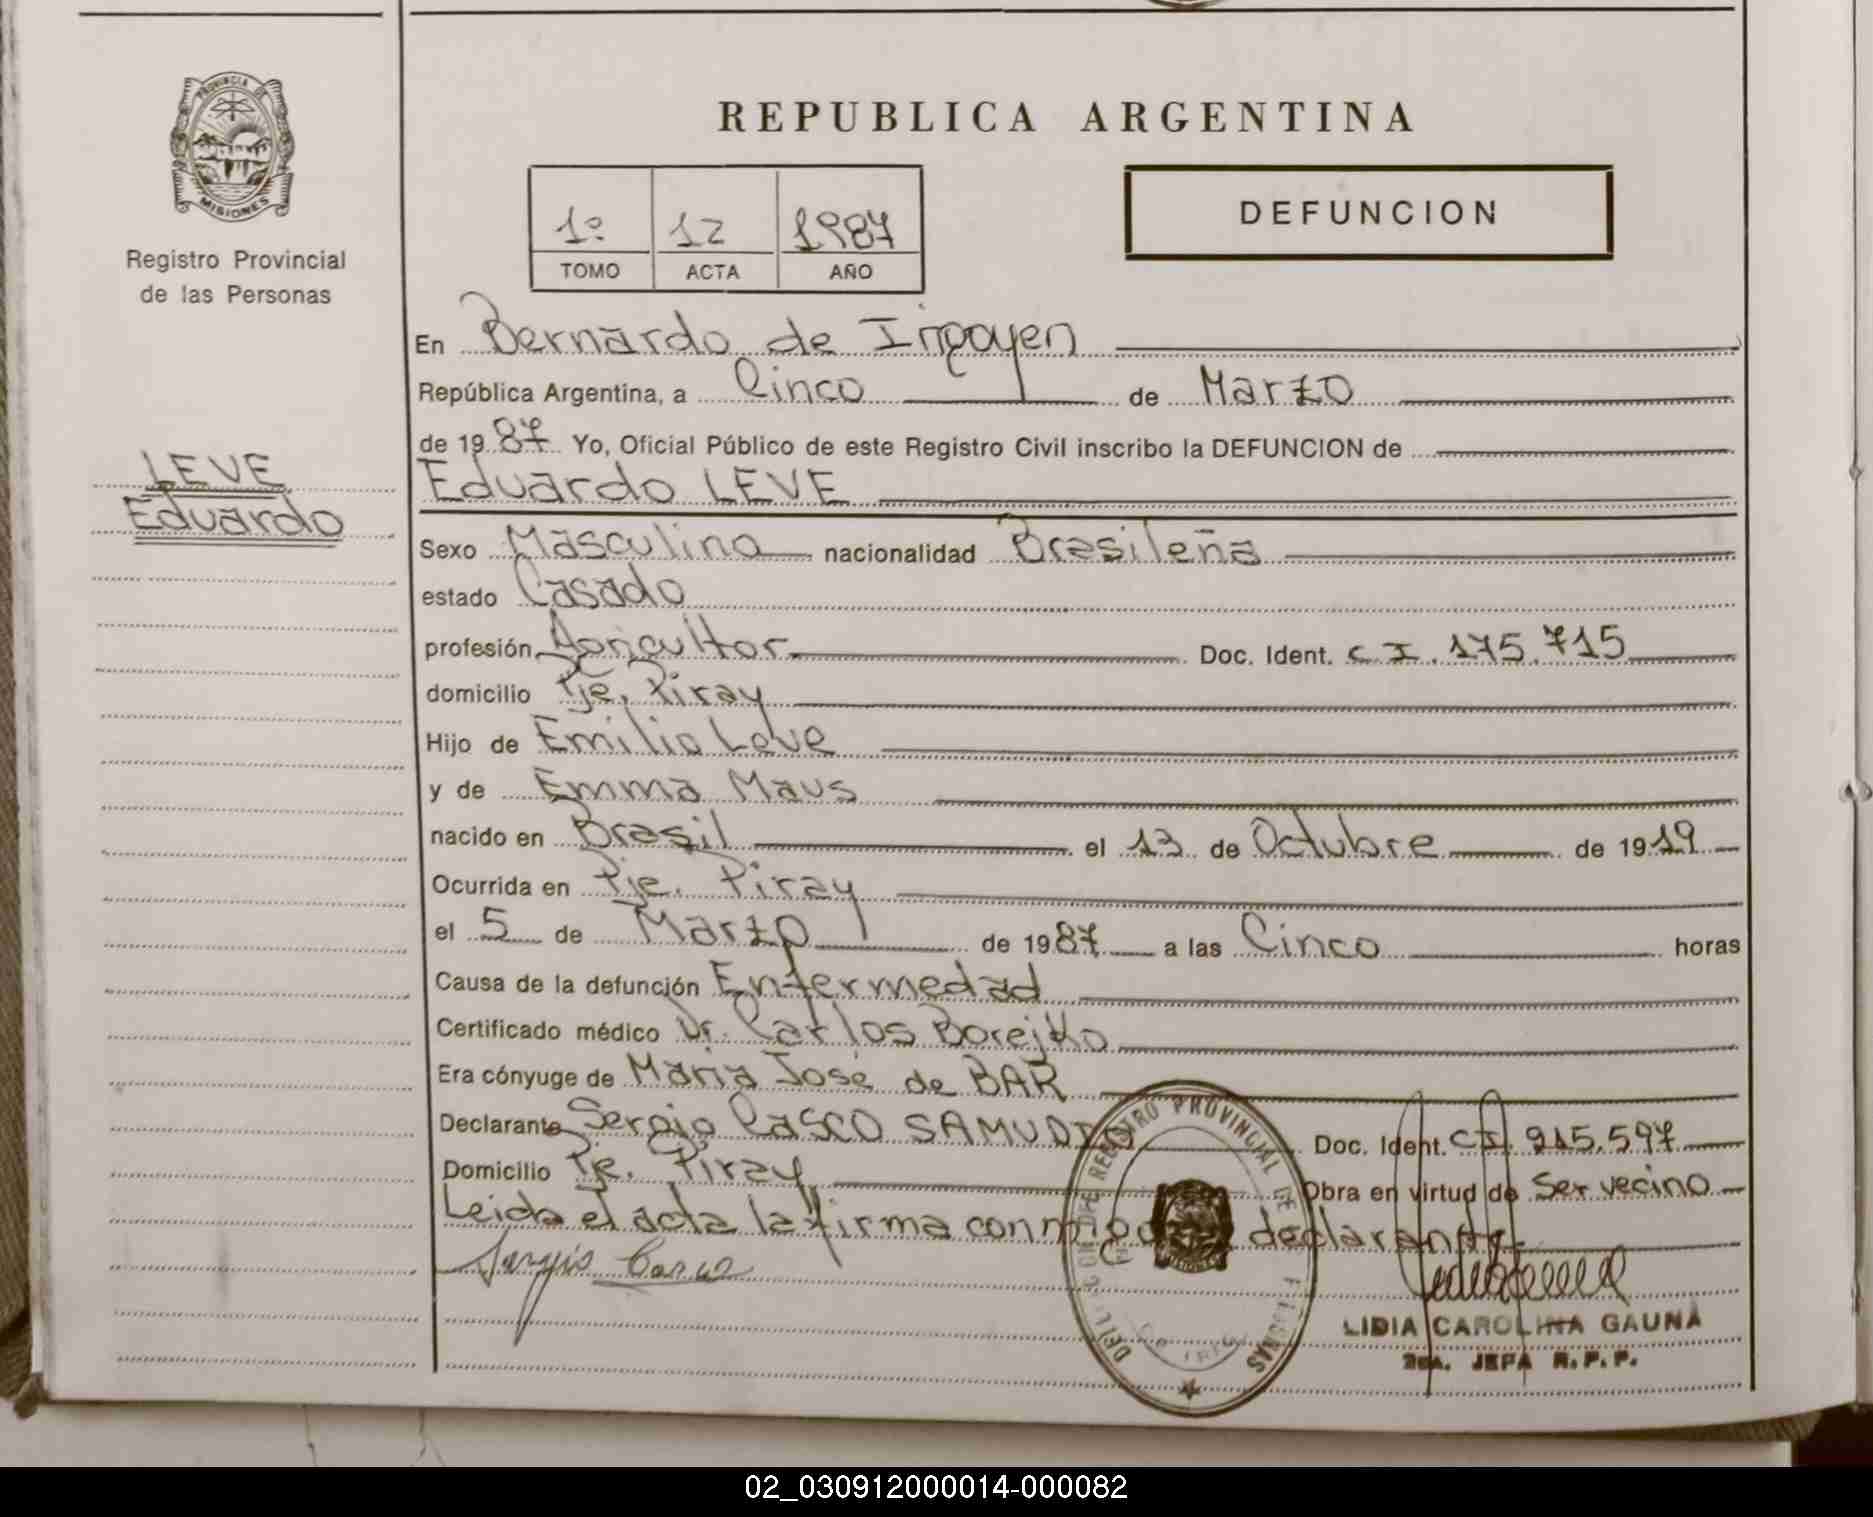 PROVINCIA DE
MISIONES
Registro Provincial
de las Personas
LEVE
Eduardo
REPUBLICA ARGENTINA
1º 12 1987
TOMO ACTA AÑO
DEFUNCION
En Bernardo de Irigoyen
República Argentina, a Cinco de Marzo
de 1987 Yo, Oficial Público de este Registro Civil inscribo la DEFUNCION de
Eduardo LEVE
Sexo Masculino nacionalidad Brasileña
estado Casado
profesión Agricultor Doc. Ident. C.I. 175.715
domicilio Pje. Piray
Hijo de Emilio Leve
y de Emma Maus
nacido en Brasil el 13 de Octubre de 1919
Ocurrida en Pje. Piray
el 5 de Marzo de 1987 a las Cinco horas
Causa de la defunción Enfermedad
Certificado médico Dr. Carlos Borejko
Era cónyuge de Maria José de BAR
Declarante Sergio CASCO SAMUDIO Doc. Ident. CI. 215.597
Domicilio Pje. Piray Obra en virtud de Ser vecino
Leida el acta la firma conmigo el declarante
Sergio Casco
REGISTRO PROVINCIAL DE
LIDIA CAROLINA GAUNA
2da. JEFA R.P.P.
02_030912000014-000082